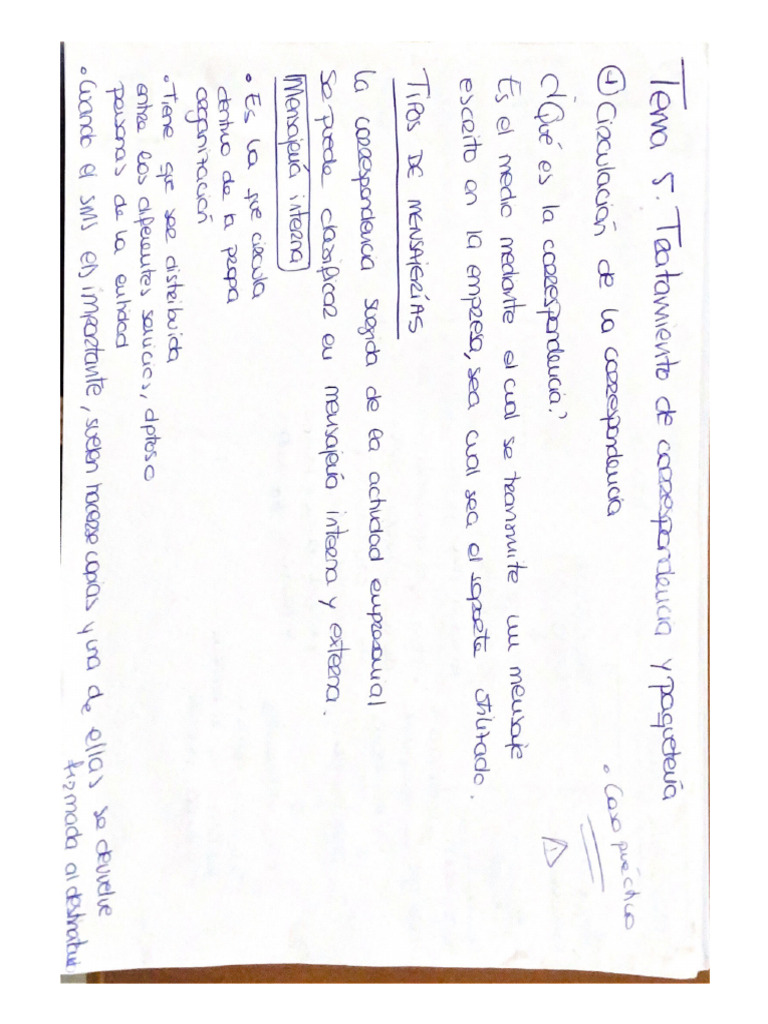 Tema 5. Tratamiento de correspondencia y paquetería
① Circulación de la correspondencia
• Caso práctico
¿Qué es la correspondencia?
Es el medio mediante el cual se transmite un mensaje
escrito en la empresa, sea cual sea el soporte utilizado.
TIPOS DE MENSAJERÍAS
La correspondencia surgida de la actividad empresarial
se puede clasificar en mensajería interna y externa.
Mensajería interna
• Es la que circula
dentro de la propia
organización
• Tiene que ser distribuida
entre los diferentes servicios, dptos o
personas de la entidad
• Cuando el SMS es importante, suelen hacerse copias y una de ellas se devuelve
firmada al destinatari